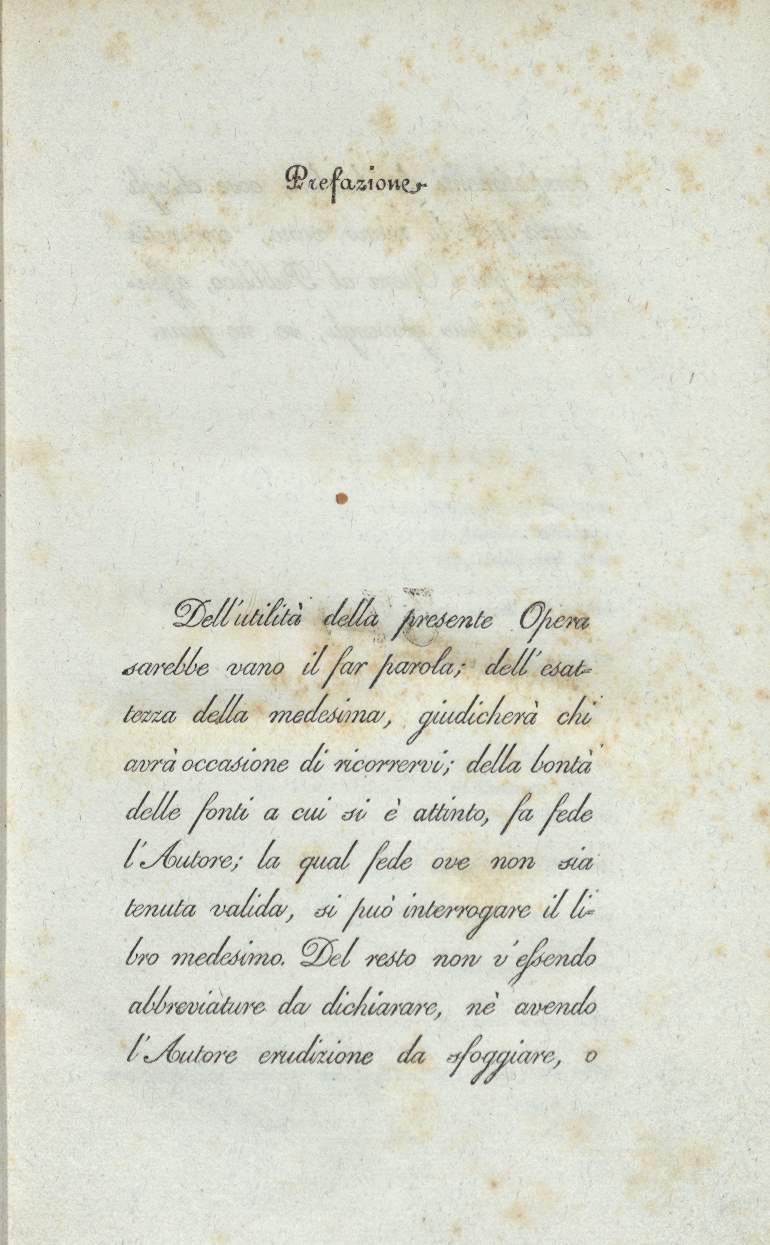 Prefazione
Dell'utilità della presente Opera
sarebbe vano il far parola; dell'esat=
tezza della medesima, giudicherà chi
avrà occasione di ricorrervi; della bontà
delle fonti a cui si è attinto, fa fede
l'Autore; la qual fede ove non sia
tenuta valida, si può interrogare il li=
bro medesimo. Del resto non v'essendo
abbreviature da dichiarare, nè avendo
l'Autore erudizione da sfoggiare, o